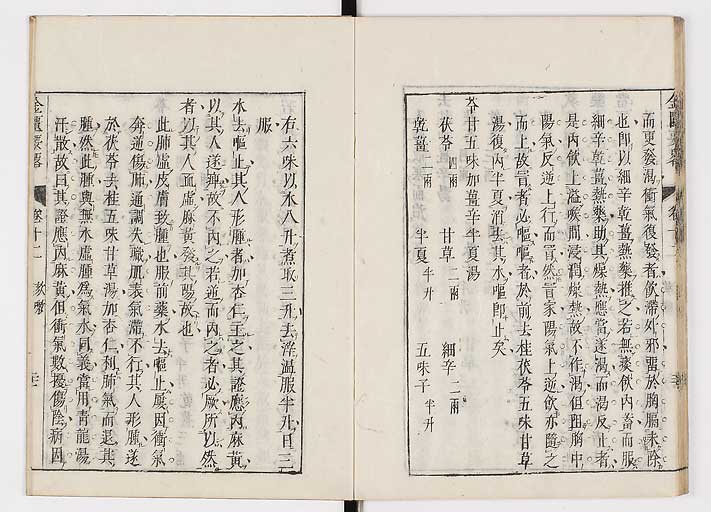 而更發渴衝氣復發者飲滯外邪畱於胸膈未除
也卽以細辛乾薑熱藥推之若無痰飲內畜而服
細辛乾薑熱藥助其燥熱應當遂渴而渴反止者
是內飲上溢喉間浸潤燥熱故不作渴但阻胸中
陽氣反逆上行而冒然冒家陽氣上逆飲亦隨之
而上故冒者必嘔嘔者於前去桂茯苓五味甘草
湯復內半夏消去其水嘔卽止矣
苓甘五味加薑辛半夏湯
茯苓 四兩 甘草 二兩 細辛 二兩
乾薑 二兩 半夏 半升 五味子 半升
右六味以水八升煮取三升去滓溫服半升日三
服
水去嘔止其人形腫者加杏仁主之其證應內麻黃
以其人遂痹故不內之若逆而內之者必厥所以然
者以其人血虛麻黃發其陽故也
此肺虛皮膚致腫也服前藥水去嘔止厥因衝氣
奔逆傷肺通調失職肌表氣滯不行其人形腫遂
於茯苓去桂五味甘草湯加杏仁利肺氣而退其
腫然此腫與無水虛腫為氣水同義當用青龍湯
汗散故曰其證應內麻黃但衝氣數擾傷陰病因
金匱要略 卷十二 痰嗽